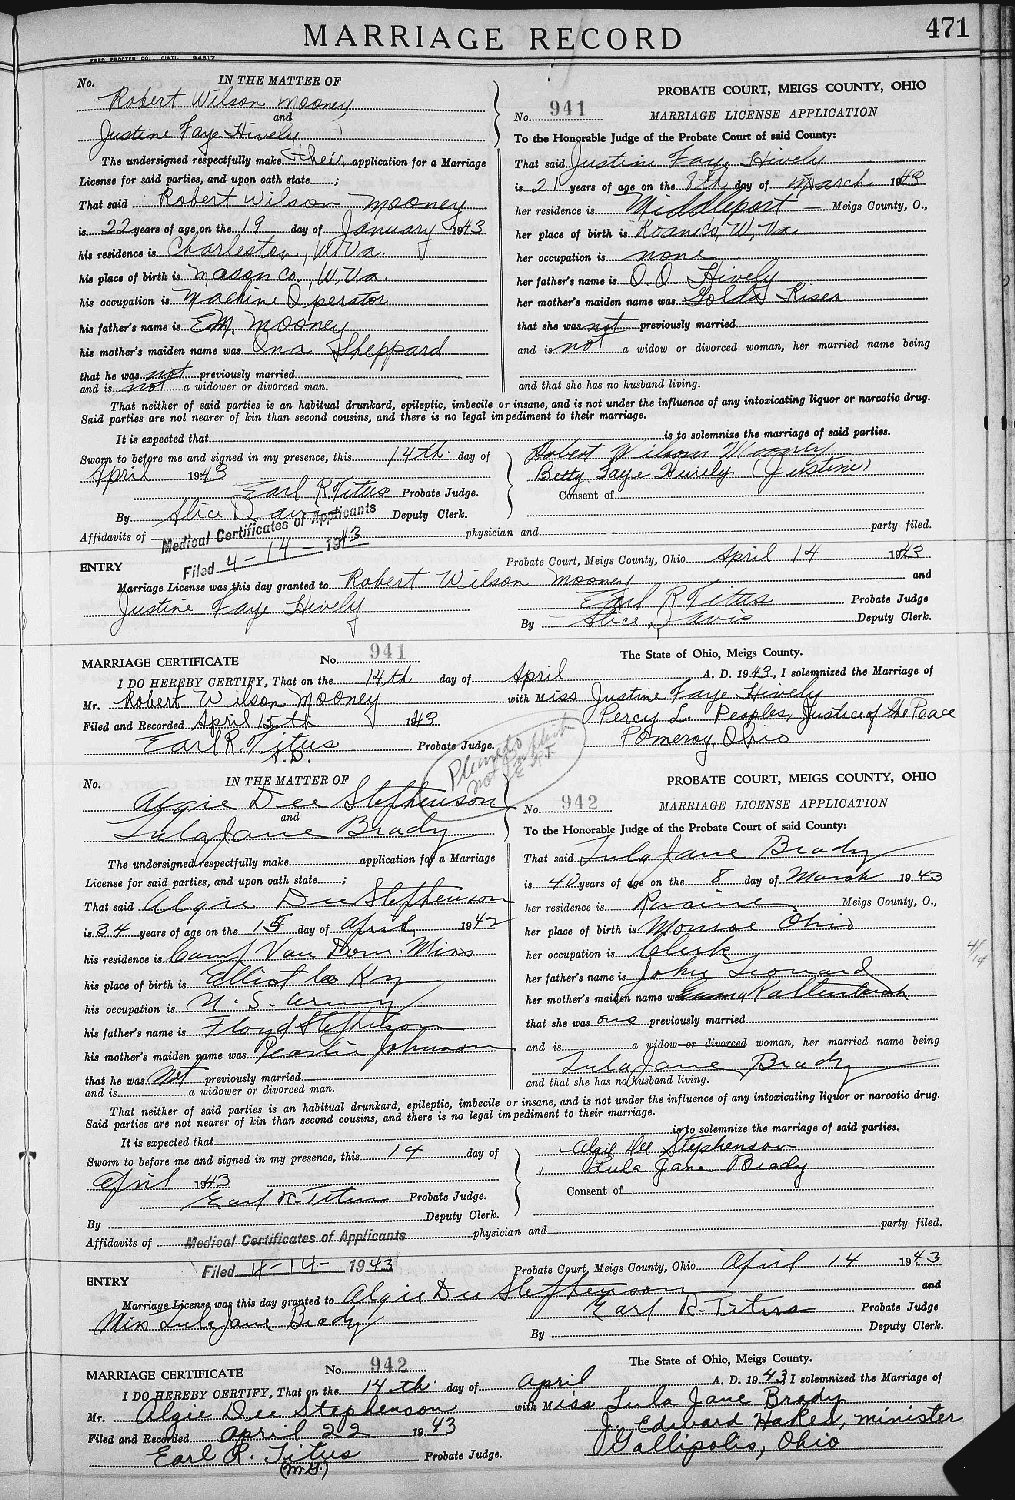 MARRIAGE RECORD 471
No. IN THE MATTER OF
Robert Wilson Mooney
and
Justine Faye Hively
The undersigned respectfully make their application for a Marriage
License for said parties, and upon oath state ;
That said Robert Wilson Mooney
is 22 years of age on the 19 day of January 1943
his residence is Charleston, W. Va.
his place of birth is Mason Co., W. Va.
his occupation is Machine Operator
his father's name is E.M. Mooney
his mother's maiden name was Ina Sheppard
that he was not previously married
and is not a widower or divorced man.
PROBATE COURT, MEIGS COUNTY, OHIO
No. 941 MARRIAGE LICENSE APPLICATION
To the Honorable Judge of the Probate Court of said County:
That said Justine Faye Hively
is 21 years of age on the 8th day of March 1943
her residence is Middleport — Meigs County, O.,
her place of birth is Roane Co, W, Va.
her occupation is none
her father's name is O. O. Hively
her mother's maiden name was Golda Kiser
that she was not previously married
and is not a widow or divorced woman, her married name being
and that she has no husband living.
That neither of said parties is an habitual drunkard, epileptic, imbecile or insane, and is not under the influence of any intoxicating liquor or narcotic drug.
Said parties are not nearer of kin than second cousins, and there is no legal impediment to their marriage.
It is expected that is to solemnize the marriage of said parties.
Sworn to before me and signed in my presence, this 14th. day of
April 1943
Earl R. Titus Probate Judge.
By Alice Davis Deputy Clerk.
Robert Wilson Mooney
Betty Faye Hively (Justine)
Consent of
Affidavits of Medical Certificates of Applicants physician and party filed.
Filed 4-14-1943
ENTRY Probate Court, Meigs County, Ohio April 14 1943
Marriage License was this day granted to Robert Wilson Mooney and
Justine Faye Hively
Earl R Titus Probate Judge
By Alice Davis Deputy Clerk.
MARRIAGE CERTIFICATE No. 941 The State of Ohio, Meigs County.
I DO HEREBY CERTIFY, That on the 14th day of April A. D. 1943, I solemnized the Marriage of
Mr. Robert Wilson Mooney with Miss Justine Faye Hively
Filed and Recorded April 15th 1943 Percy L. Peoples, Justice of the Peace
Earl R. Titus Probate Judge. Pomeroy, Ohio
No. IN THE MATTER OF
Algie Dee Stephenson
and
Lula Jane Brady
The undersigned respectfully make application for a Marriage
License for said parties, and upon oath state ;
That said Algie Dee Stephenson
is 34 years of age on the 15 day of April 1942
his residence is Camp Van Dorn Miss
his place of birth is Elliot Co Ky
his occupation is U. S. Army
his father's name is Floyd Stephenson
his mother's maiden name was Pearlie Johnson
that he was Not previously married
and is a widower or divorced man.
PROBATE COURT, MEIGS COUNTY, OHIO
No. 942 MARRIAGE LICENSE APPLICATION
To the Honorable Judge of the Probate Court of said County:
That said Lula Jane Brady
is 40 years of age on the 8 day of March 1943
her residence is Racine Meigs County, O.,
her place of birth is Monroe Ohio
her occupation is Clerk
her father's name is John Leonard
her mother's maiden name was
that she was one previously married
and is a widow or divorced woman, her married name being
Lula Jane Brady
and that she has no husband living.
That neither of said parties is an habitual drunkard, epileptic, imbecile or insane, and is not under the influence of any intoxicating liquor or narcotic drug.
Said parties are not nearer of kin than second cousins, and there is no legal impediment to their marriage.
It is expected that is to solemnize the marriage of said parties.
Sworn to before me and signed in my presence, this 14 day of
April 1943
Earl R. Titus Probate Judge.
By Deputy Clerk.
Algie Dee Stephenson
Lula Jane Brady
Consent of
Affidavits of Medical Certificates of Applicants physician and party filed.
Filed 4-14-1943
ENTRY Probate Court, Meigs County, Ohio April 14 1943
Marriage License was this day granted to Algie Dee Stephenson and
Miss Lula Jane Brady
Earl R. Titus Probate Judge
By Deputy Clerk.
MARRIAGE CERTIFICATE No. 942 The State of Ohio, Meigs County.
I DO HEREBY CERTIFY, That on the 14th. day of April A. D. 1943, I solemnized the Marriage of
Mr. Algie Dee Stephenson with Miss Lula Jane Brady
Filed and Recorded April 22 1943 J. Edward Hakes, minister
Earl R. Titus Probate Judge. Gallipolis, Ohio